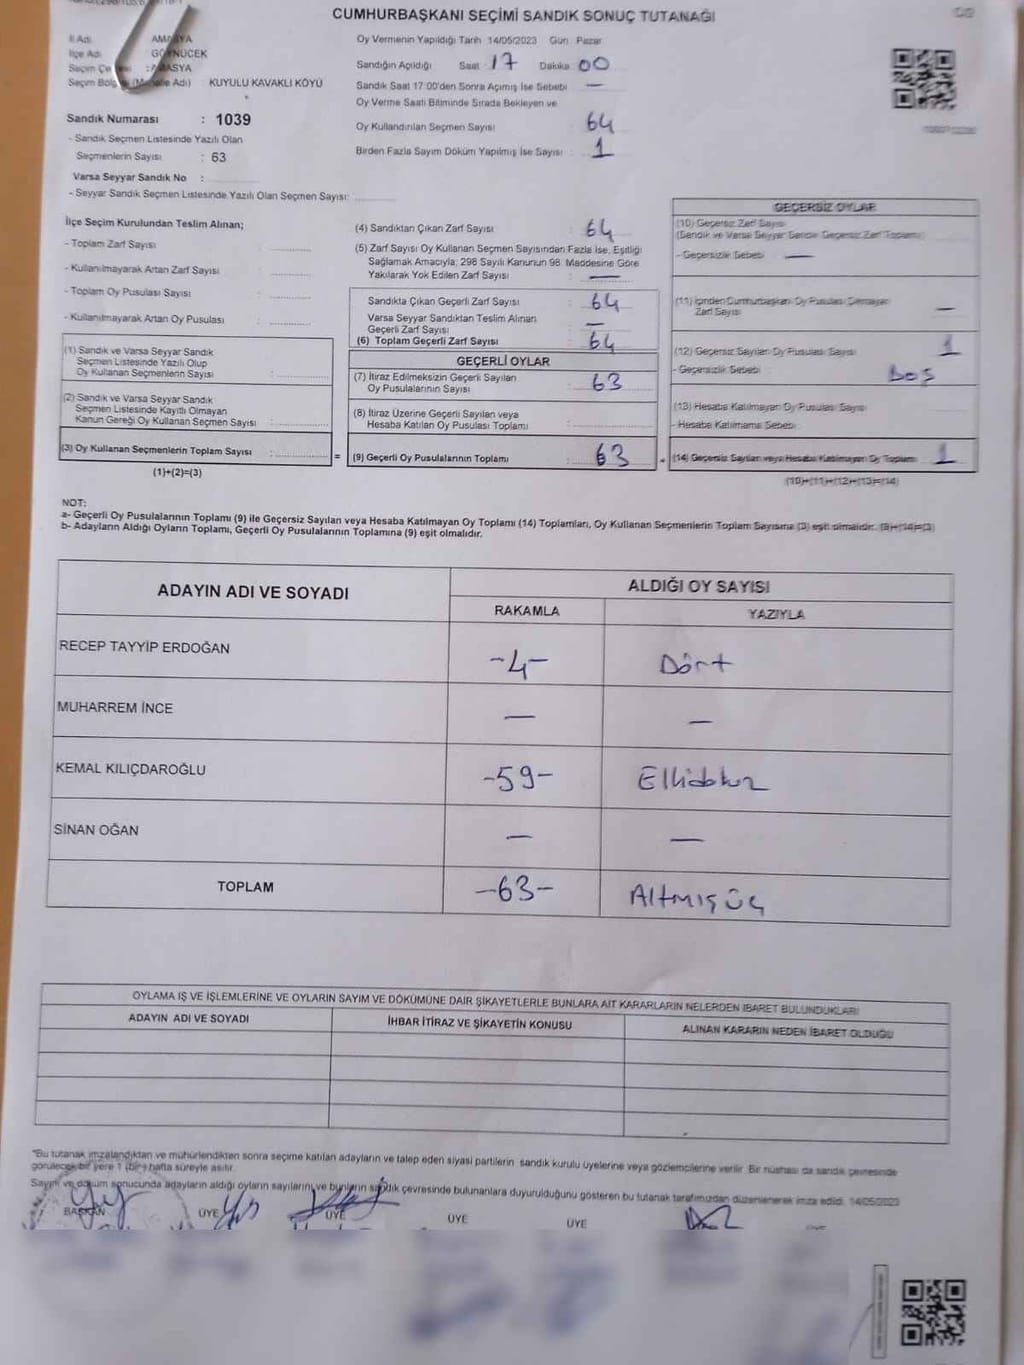 CUMHURBAŞKANI SEÇİMİ SANDIK SONUÇ TUTANAĞI
İl Adı : AMASYA
İlçe Adı : GÖYNÜCEK
Seçim Çe : AMASYA
Seçim Bölg (Mahalle Adı) : KUYULU KAVAKLI KÖYÜ
Sandık Numarası : 1039
- Sandık Seçmen Listesinde Yazılı Olan
Seçmenlerin Sayısı : 63
Varsa Seyyar Sandık No :
- Seyyar Sandık Seçmen Listesinde Yazılı Olan Seçmen Sayısı:
Oy Vermenin Yapıldığı Tarih 14/05/2023 Gün : Pazar
Sandığın Açıldığı Saat : 17 Dakika 00
Sandık Saat 17:00'den Sonra Açmış İse Sebebi —
Oy Verme Saati Bitiminde Sırada Bekleyen ve
Oy Kullandırılan Seçmen Sayısı : 64
Birden Fazla Sayım Döküm Yapılmış İse Sayısı : 1
İlçe Seçim Kurulundan Teslim Alınan;
- Toplam Zarf Sayısı :
- Kullanılmayarak Artan Zarf Sayısı :
- Toplam Oy Pusulası Sayısı :
- Kullanılmayarak Artan Oy Pusulası :
(1) Sandık ve Varsa Seyyar Sandık
Seçmen Listesinde Yazılı Olup
Oy Kullanan Seçmenlerin Sayısı :
(2) Sandık ve Varsa Seyyar Sandık
Seçmen Listesinde Kayıtlı Olmayan
Kanun Gereği Oy Kullanan Seçmen Sayısı :
(3) Oy Kullanan Seçmenlerin Toplam Sayısı :
(1)+(2)=(3)
(4) Sandıktan Çıkan Zarf Sayısı : 64
(5) Zarf Sayısı Oy Kullanan Seçmen Sayısından Fazla İse, Eşitliği
Sağlamak Amacıyla; 298 Sayılı Kanunun 98. Maddesine Göre
Yakılarak Yok Edilen Zarf Sayısı : —
Sandıkta Çıkan Geçerli Zarf Sayısı : 64
Varsa Seyyar Sandıktan Teslim Alınan
Geçerli Zarf Sayısı : —
(6) Toplam Geçerli Zarf Sayısı : 64
GEÇERLİ OYLAR
(7) İtiraz Edilmeksizin Geçerli Sayılan
Oy Pusulalarının Sayısı : 63
(8) İtiraz Üzerine Geçerli Sayılan veya
Hesaba Katılan Oy Pusulası Toplamı :
= (9) Geçerli Oy Pusulalarının Toplamı : 63
GEÇERSİZ OYLAR
(10) Geçersiz Zarf Sayısı
(Sandık ve Varsa Seyyar Sandık Geçersiz Zarf Toplamı)
- Geçersizlik Sebebi : —
(11) İçinden Cumhurbaşkanı Oy Pusulası Çıkmayan
Zarf Sayısı —
(12) Geçersiz Sayılan Oy Pusulası Sayısı 1
- Geçersizlik Sebebi : Boş
(13) Hesaba Katılmayan Oy Pusulası Sayısı
- Hesaba Katılmama Sebebi
+ (14) Geçersiz Sayılan veya Hesaba Katılmayan Oy Toplamı 1
(10)+(11)+(12)+(13)=(14)
NOT:
a- Geçerli Oy Pusulalarının Toplamı (9) ile Geçersiz Sayılan veya Hesaba Katılmayan Oy Toplamı (14) Toplamları, Oy Kullanan Seçmenlerin Toplam Sayısına (3) eşit olmalıdır. (9)+(14)=(3)
b- Adayların Aldığı Oyların Toplamı, Geçerli Oy Pusulalarının Toplamına (9) eşit olmalıdır.
ADAYIN ADI VE SOYADI
ALDIĞI OY SAYISI
RAKAMLA YAZIYLA
RECEP TAYYİP ERDOĞAN -4- Dört
MUHARREM İNCE — —
KEMAL KILIÇDAROĞLU -59- Ellidokuz
SİNAN OĞAN — —
TOPLAM -63- Altmışüç
OYLAMA İŞ VE İŞLEMLERİNE VE OYLARIN SAYIM VE DÖKÜMÜNE DAİR ŞİKAYETLERLE BUNLARA AİT KARARLARIN NELERDEN İBARET BULUNDUKLARI
ADAYIN ADI VE SOYADI İHBAR İTİRAZ VE ŞİKAYETİN KONUSU ALINAN KARARIN NEDEN İBARET OLDUĞU
"Bu tutanak imzalandıktan ve mühürlendikten sonra seçime katılan adayların ve talep eden siyasi partilerin sandık kurulu üyelerine veya gözlemcilerine verilir. Bir nüshası da sandık çevresinde
görülecek bir yere 1 (bir) hafta süreyle asılır.
Sayım ve döküm sonucunda adayların aldığı oyların sayılarını ve bunların sandık çevresinde bulunanlara duyurulduğunu gösteren bu tutanak tarafımızdan düzenlenerek imza edildi. 14/05/2023
BAŞKAN ÜYE ÜYE ÜYE ÜYE